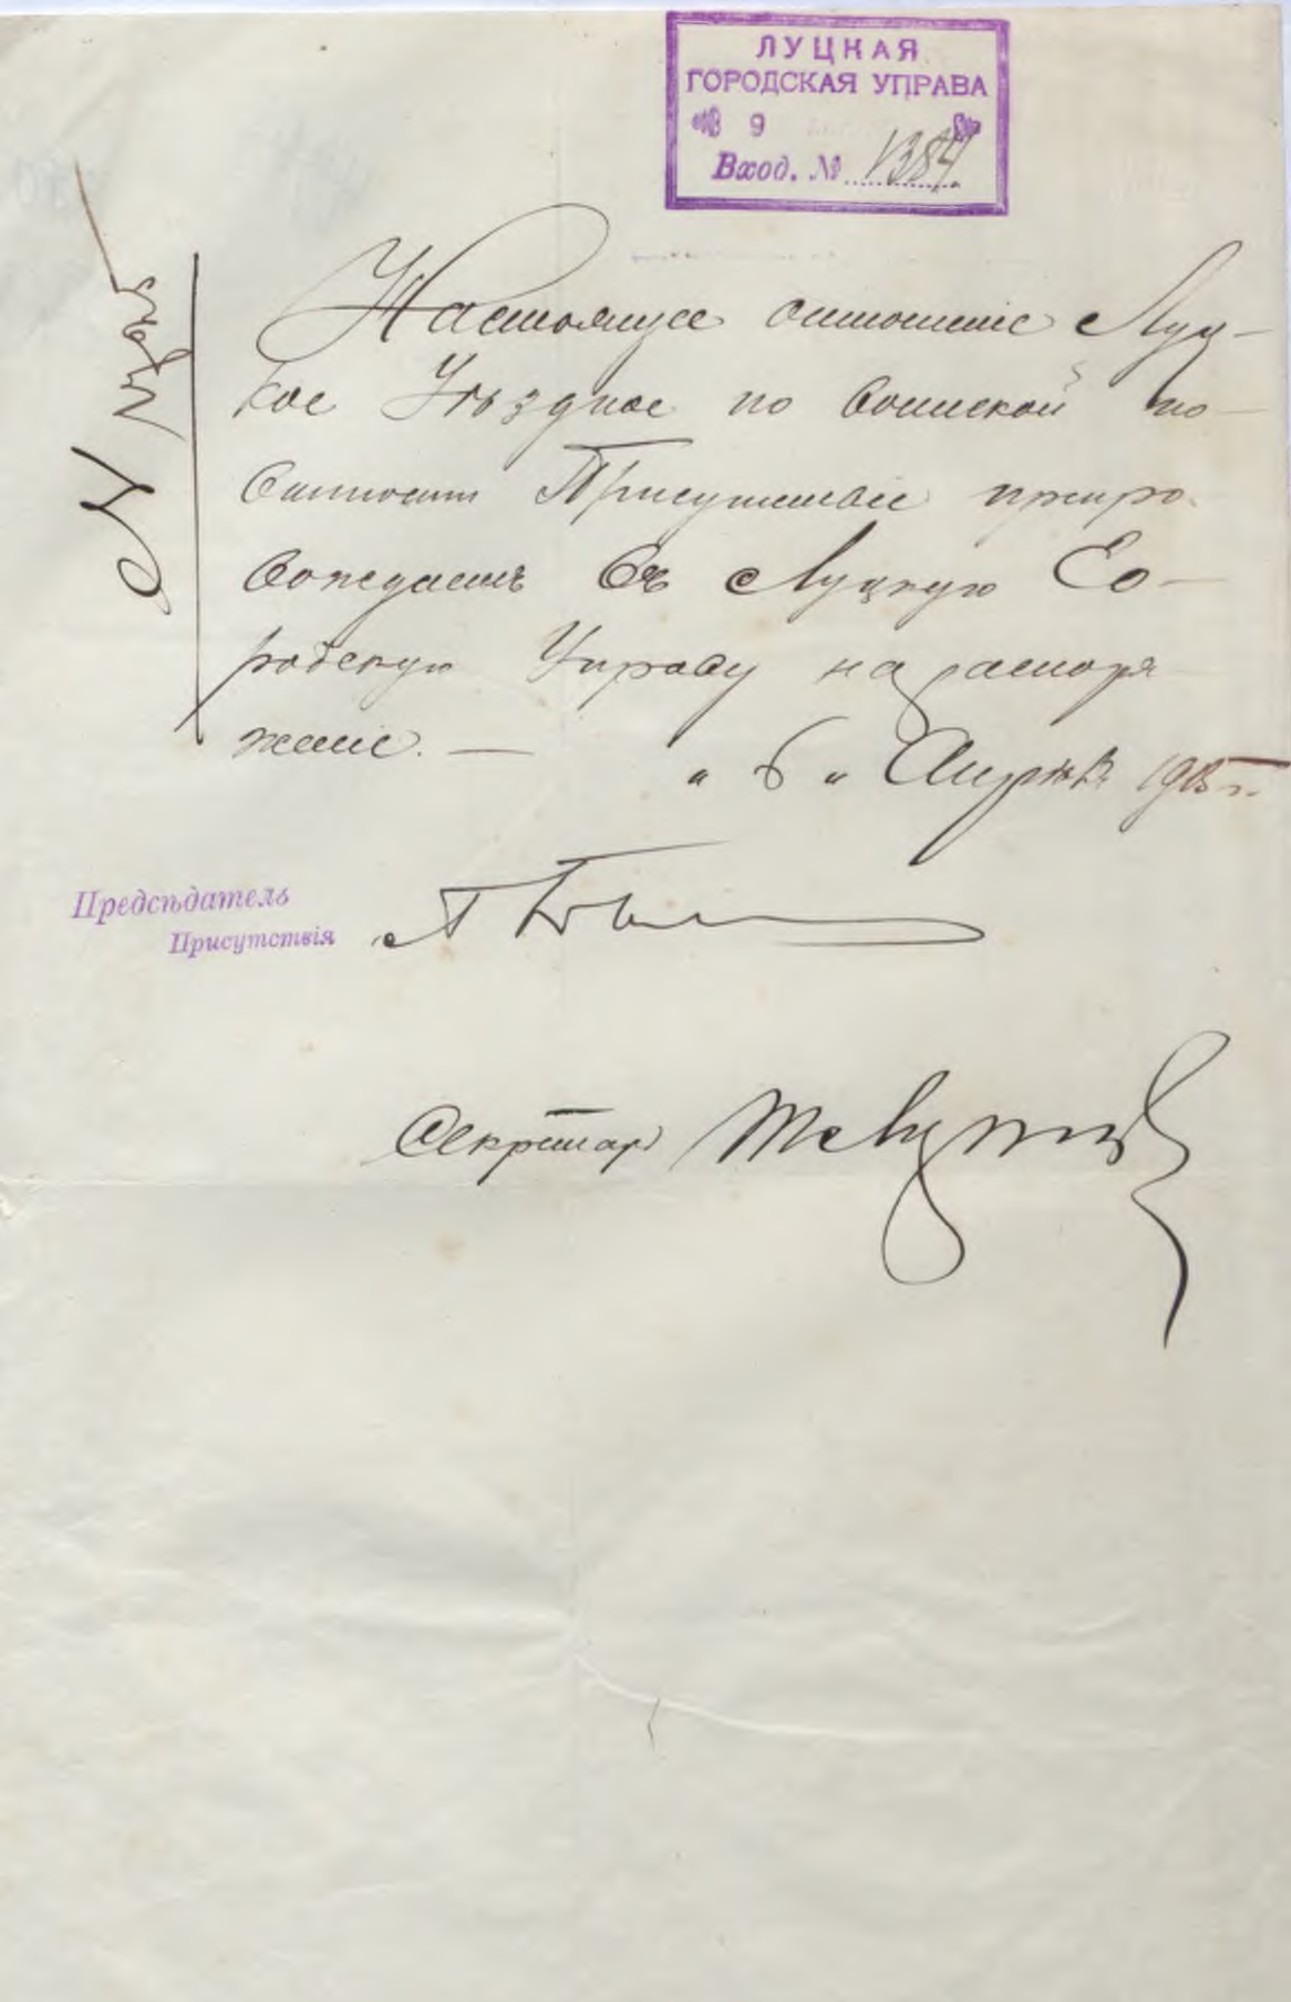 ЛУЦКАЯ
ГОРОДСКАЯ УПРАВА
9
Вход. № 1384
Настоящее отношеніе Луц-
кое Уѣздное по воинской по-
винности Присутствіе препро-
вождаетъ въ Луцкую Го-
родскую Управу на распоря
женіе. —
" 6 " Апрѣля 1905 г.
Предсѣдатель
Присутствія
Секретарь